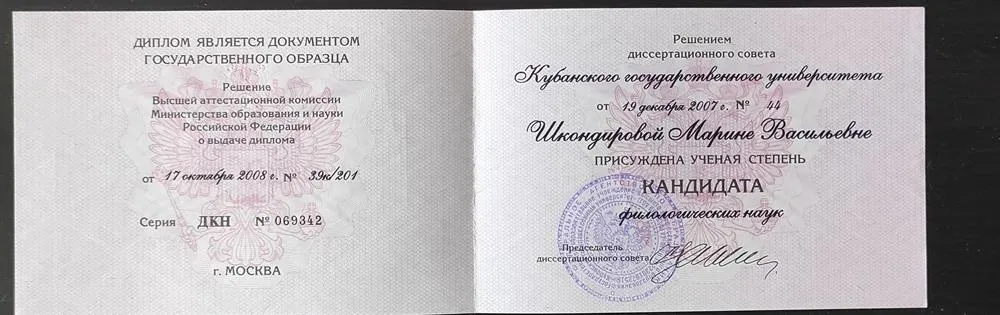 ДИПЛОМ ЯВЛЯЕТСЯ ДОКУМЕНТОМ
ГОСУДАРСТВЕННОГО ОБРАЗЦА
Решение
Высшей аттестационной комиссии
Министерства образования и науки
Российской Федерации
о выдаче диплома
от 17 октября 2008 г. № 39к/201
Серия ДКН № 069342
г. МОСКВА
Решением
диссертационного совета
Кубанского государственного университета
от 19 декабря 2007 г. № 44
Шкондировой Марине Васильевне
ПРИСУЖДЕНА УЧЕНАЯ СТЕПЕНЬ
КАНДИДАТА
филологических наук
Председатель
диссертационного совета